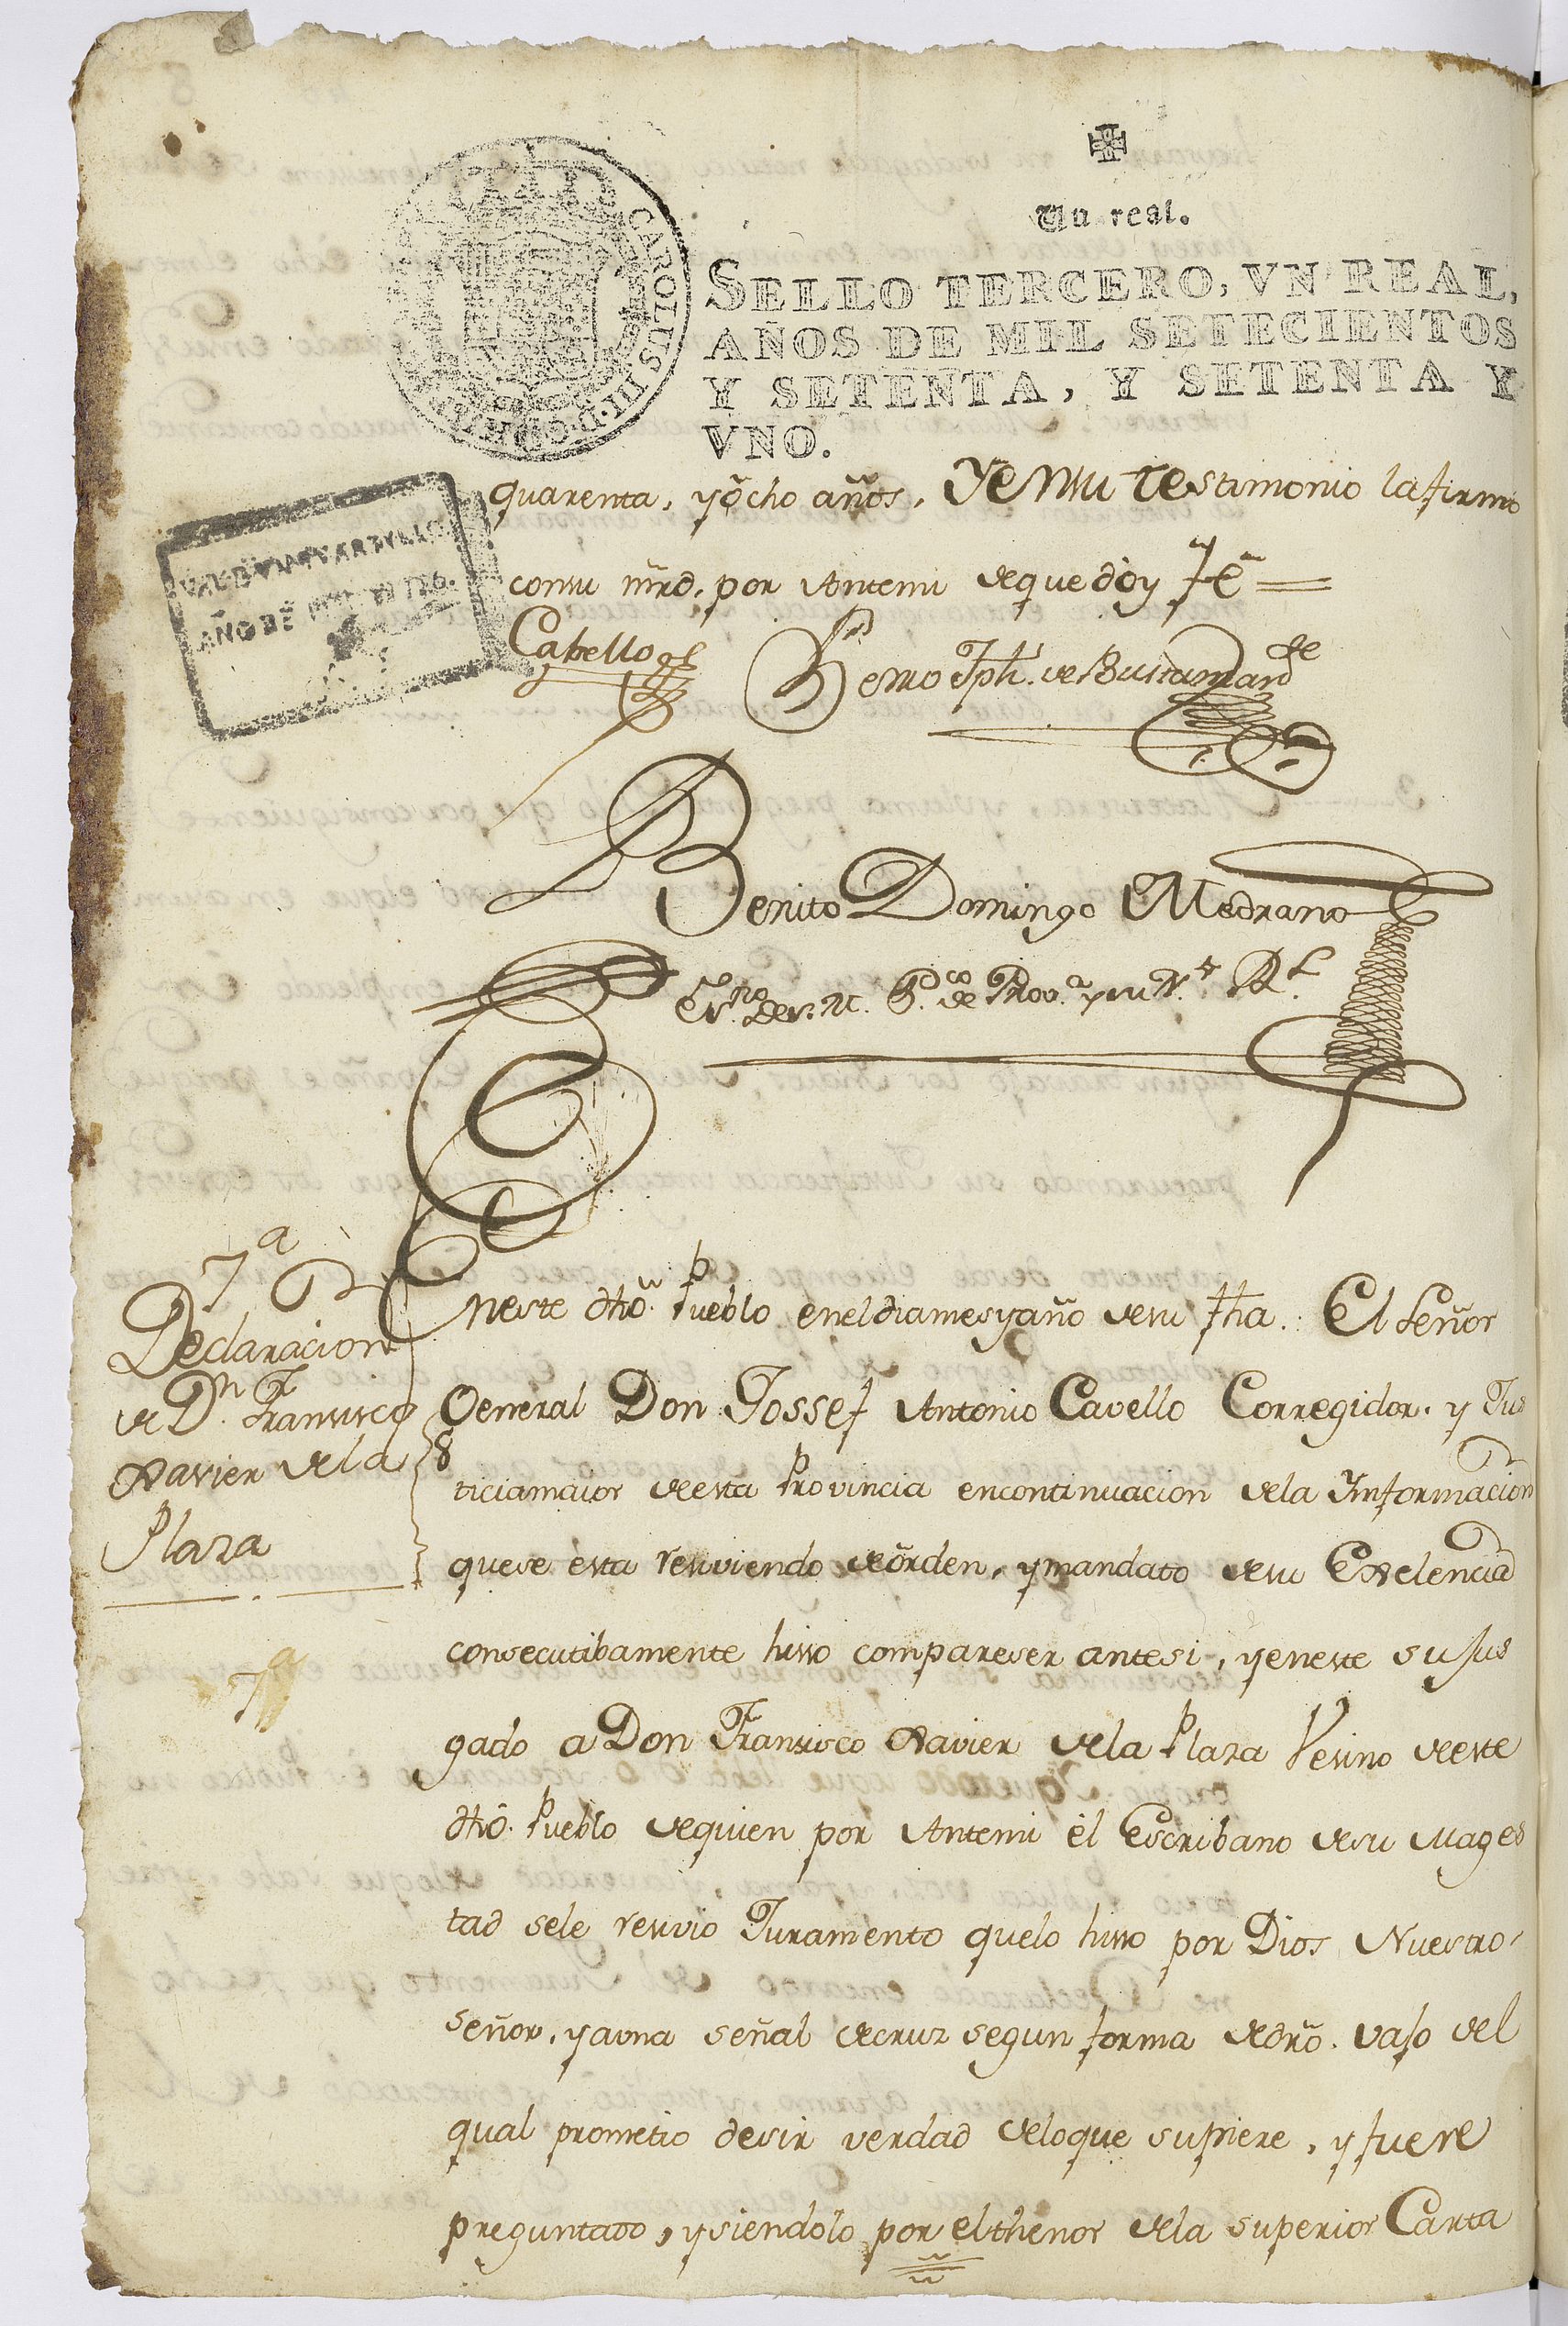 ✠
Un real.
SELLO TERCERO, VN REAL,
AÑOS DE MIL SETECIENTOS
Y SETENTA, Y SETENTA Y
VNO.
CAROLUS III. D. G.
quarenta, y ôcho años, Yensu testimonio lafirmo
consu mrd, por Antemi dequedoy Feé =
Cabello
Pedro Jph. de Bustamante
Benito Domingo Medrano
Esno. de S. M. Pco. de Prova. y su Rl.
7a
Declaracion
de Dn. Fransisco
Xavier dela
Plaza
7a
Eneste dho. Pueblo eneldiamesyaño desu fha. El Señor
General Don Jossef Antonio Cavello Corregidor, y Jus
ticiamaior deesta Provincia encontinuacion dela Ynformacion
quese esta resiviendo deôrden, ymandato desu Exelencia
consecutibamente hisso compareser antesi, yeneste su Jus
gado a Don Fransisco Xavier dela Plaza Vesino deeste
dho. Pueblo dequien por Antemi êl Escribano desu Mages
tad sele resivio Juramento quelo hisso por Dios Nuestro
señor, yauna señal decruz segun forma dedro. vajo del
qual prometio desir verdad deloque supiere, yfuere
preguntado, ysiendolo por elthenor dela superior Carta